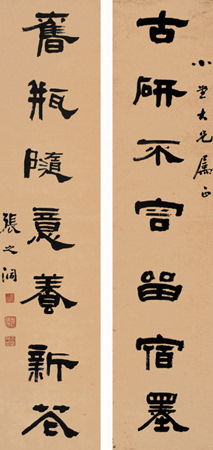 小大兄屬正
古研不容留宿墨
舊瓶隨意養新花
張之洞